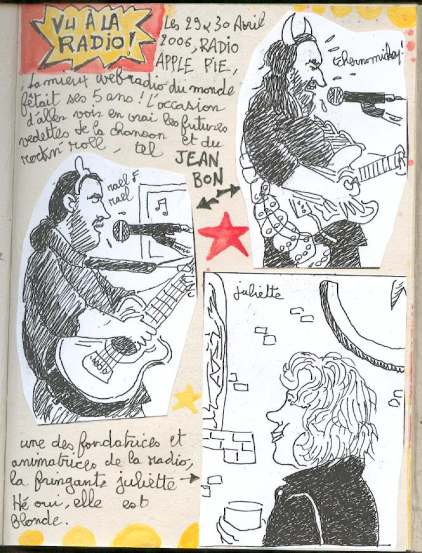 VU À LA
RADIO!
Les 29 & 30 Avril
2006, RADIO
APPLE PIE,
La mieux webradio du monde
fêtait ses 5 ans! L'occasion
d'aller voir en vrai les futures
vedettes de la chanson et du
rock'n'roll, tel
JEAN
BON
tchernomickey!
rael &
ruel
juliette
une des fondatrices et
animatrices de la radio,
la fringante juliette
Hé oui, elle est
blonde.